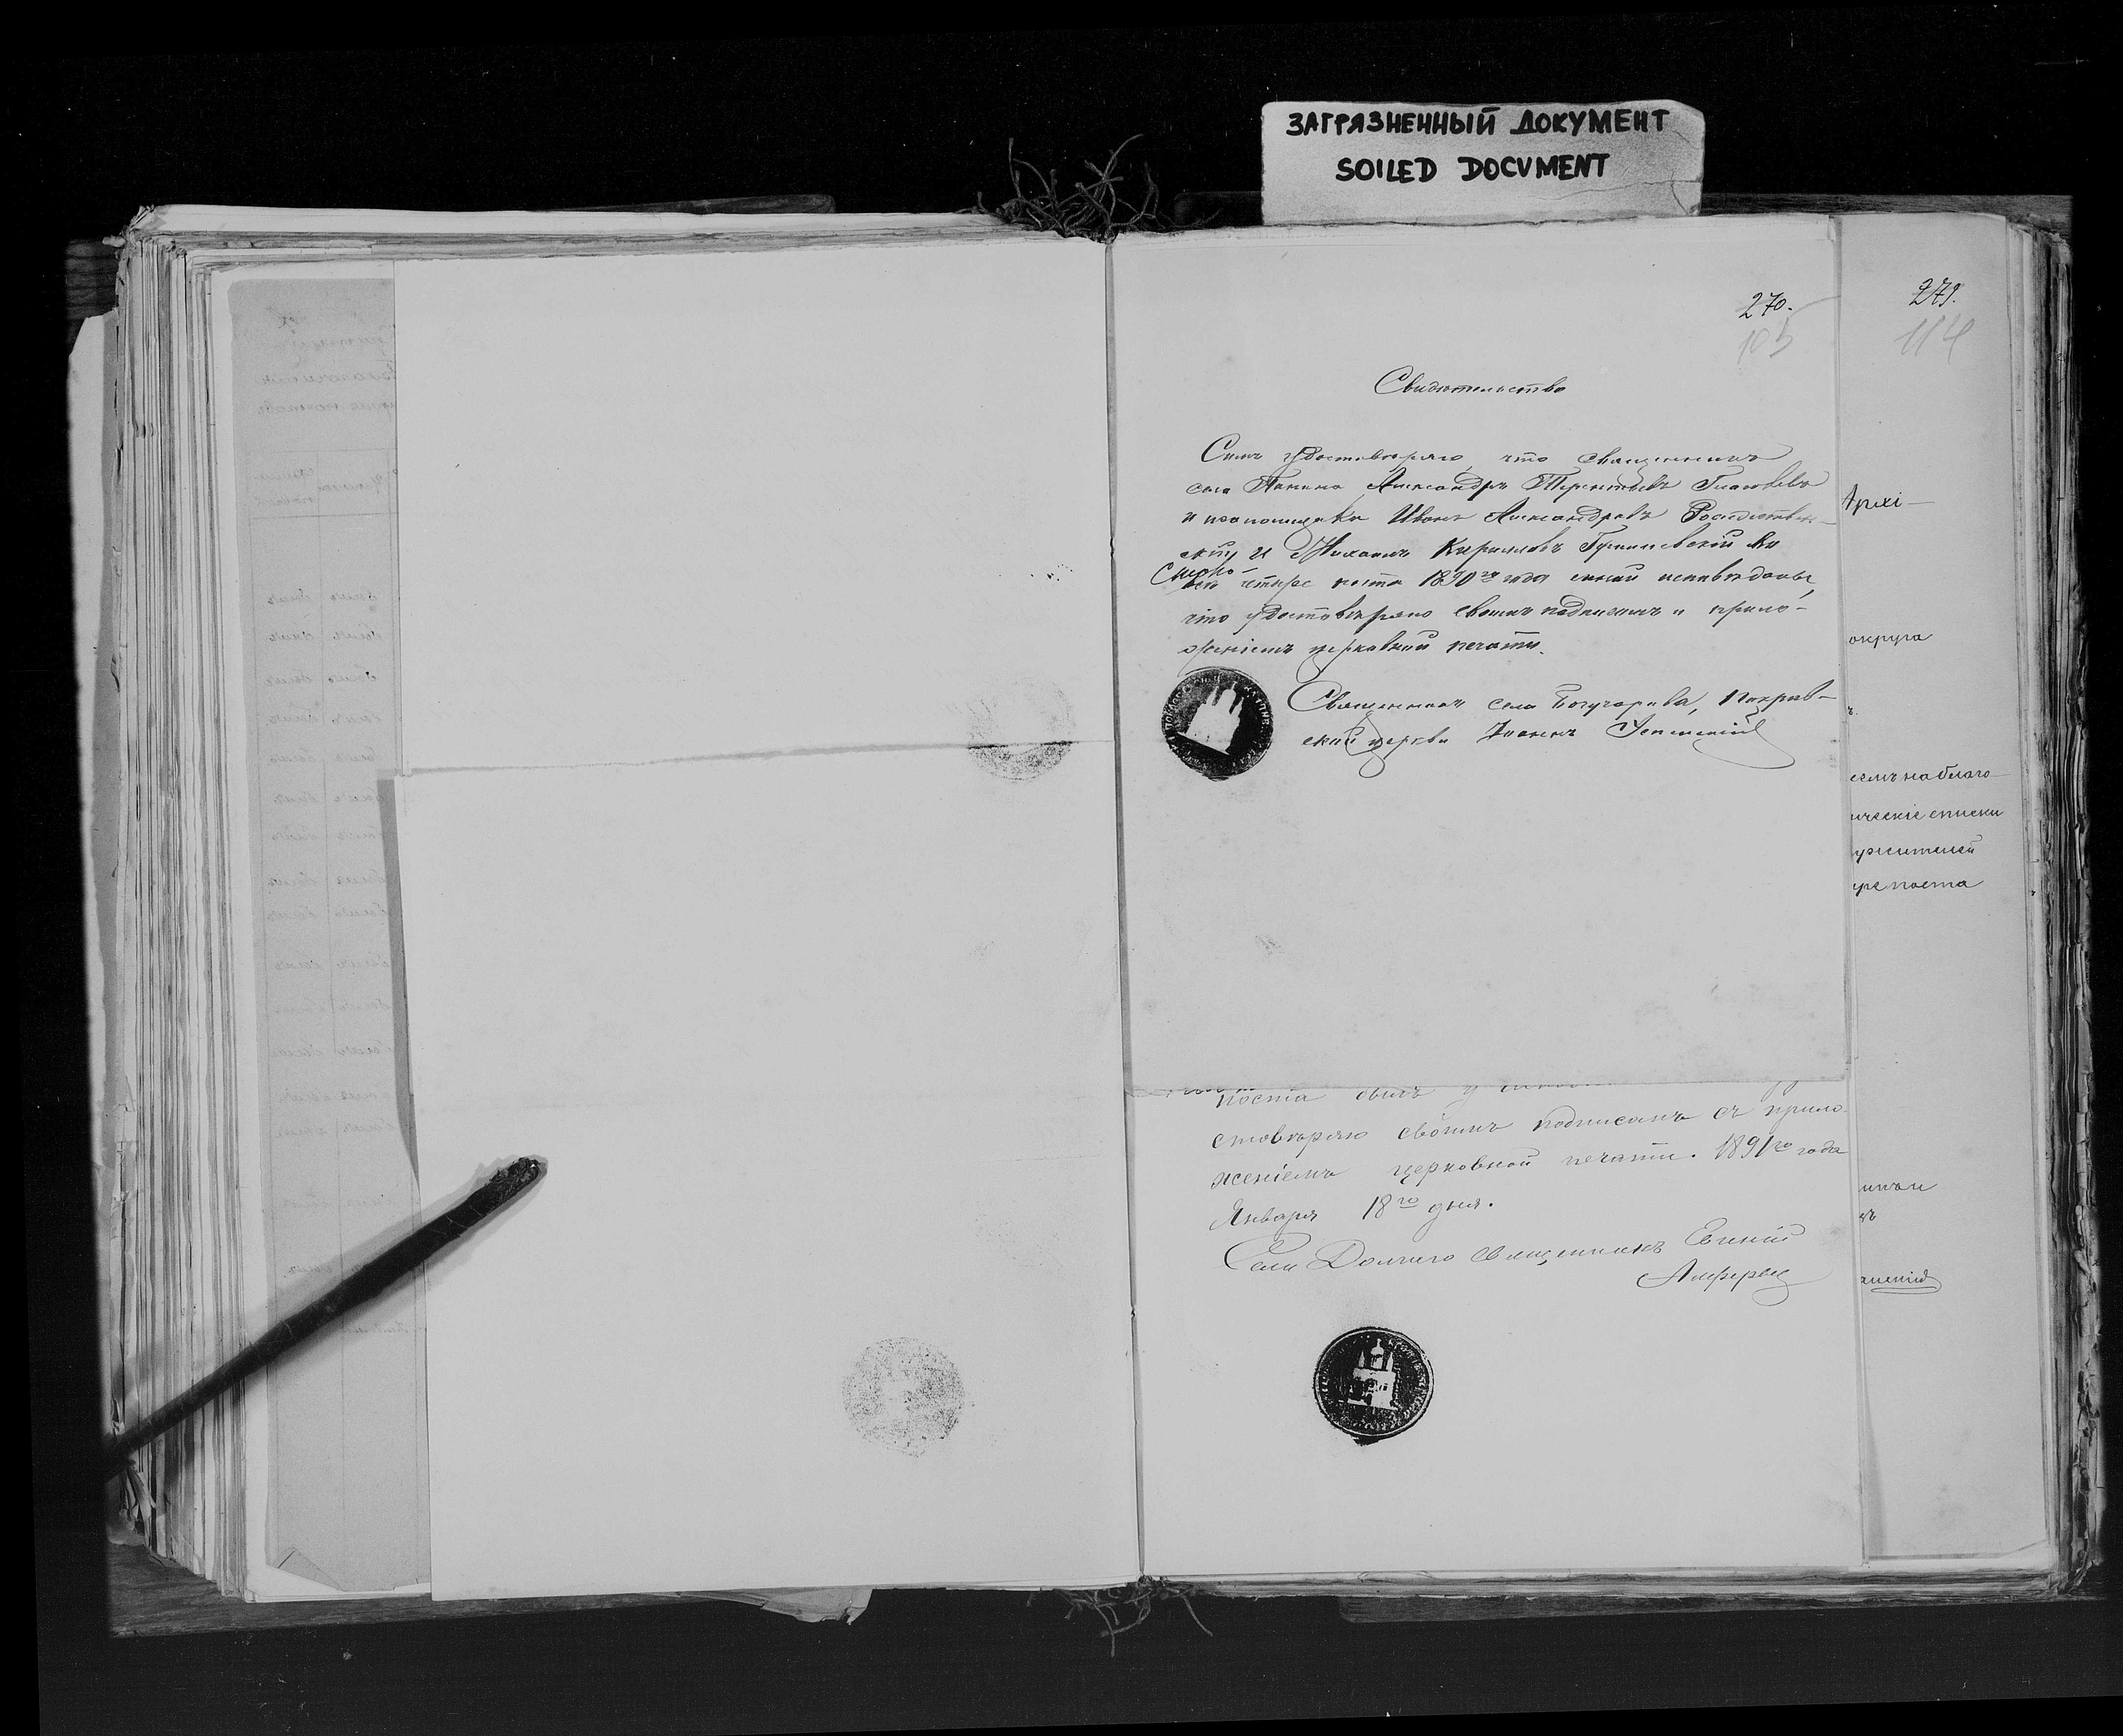 ЗАГРЯЗНЕННЫЙ ДОКУМЕНТ
SOILED DOCUMENT
270.
105
Свидѣтельство
Симъ удостовѣряю что священникъ
села Панина Александръ Терентьевъ
и псаломщики Иванъ Александровъ Рождествен-
скій и Михаилъ Кирилловъ
четыре поста 1890го года мною исповѣданы,
что удостовѣряю своимъ подписомъ и прило-
женіемъ церковной печати.
Священникъ села Богучарова, Покров-
ской церкви Іоаннъ Успенскій
поста былъ у
стовѣряю своимъ подписомъ съ прило-
женіемъ церковной печати. 1891го года
Января 18го дня.
Села Долгаго священникъ Евгеній
271.
114
Архі-
округа
ъ.
семъ на благо-
ическіе списки
ужителей
ыре поста